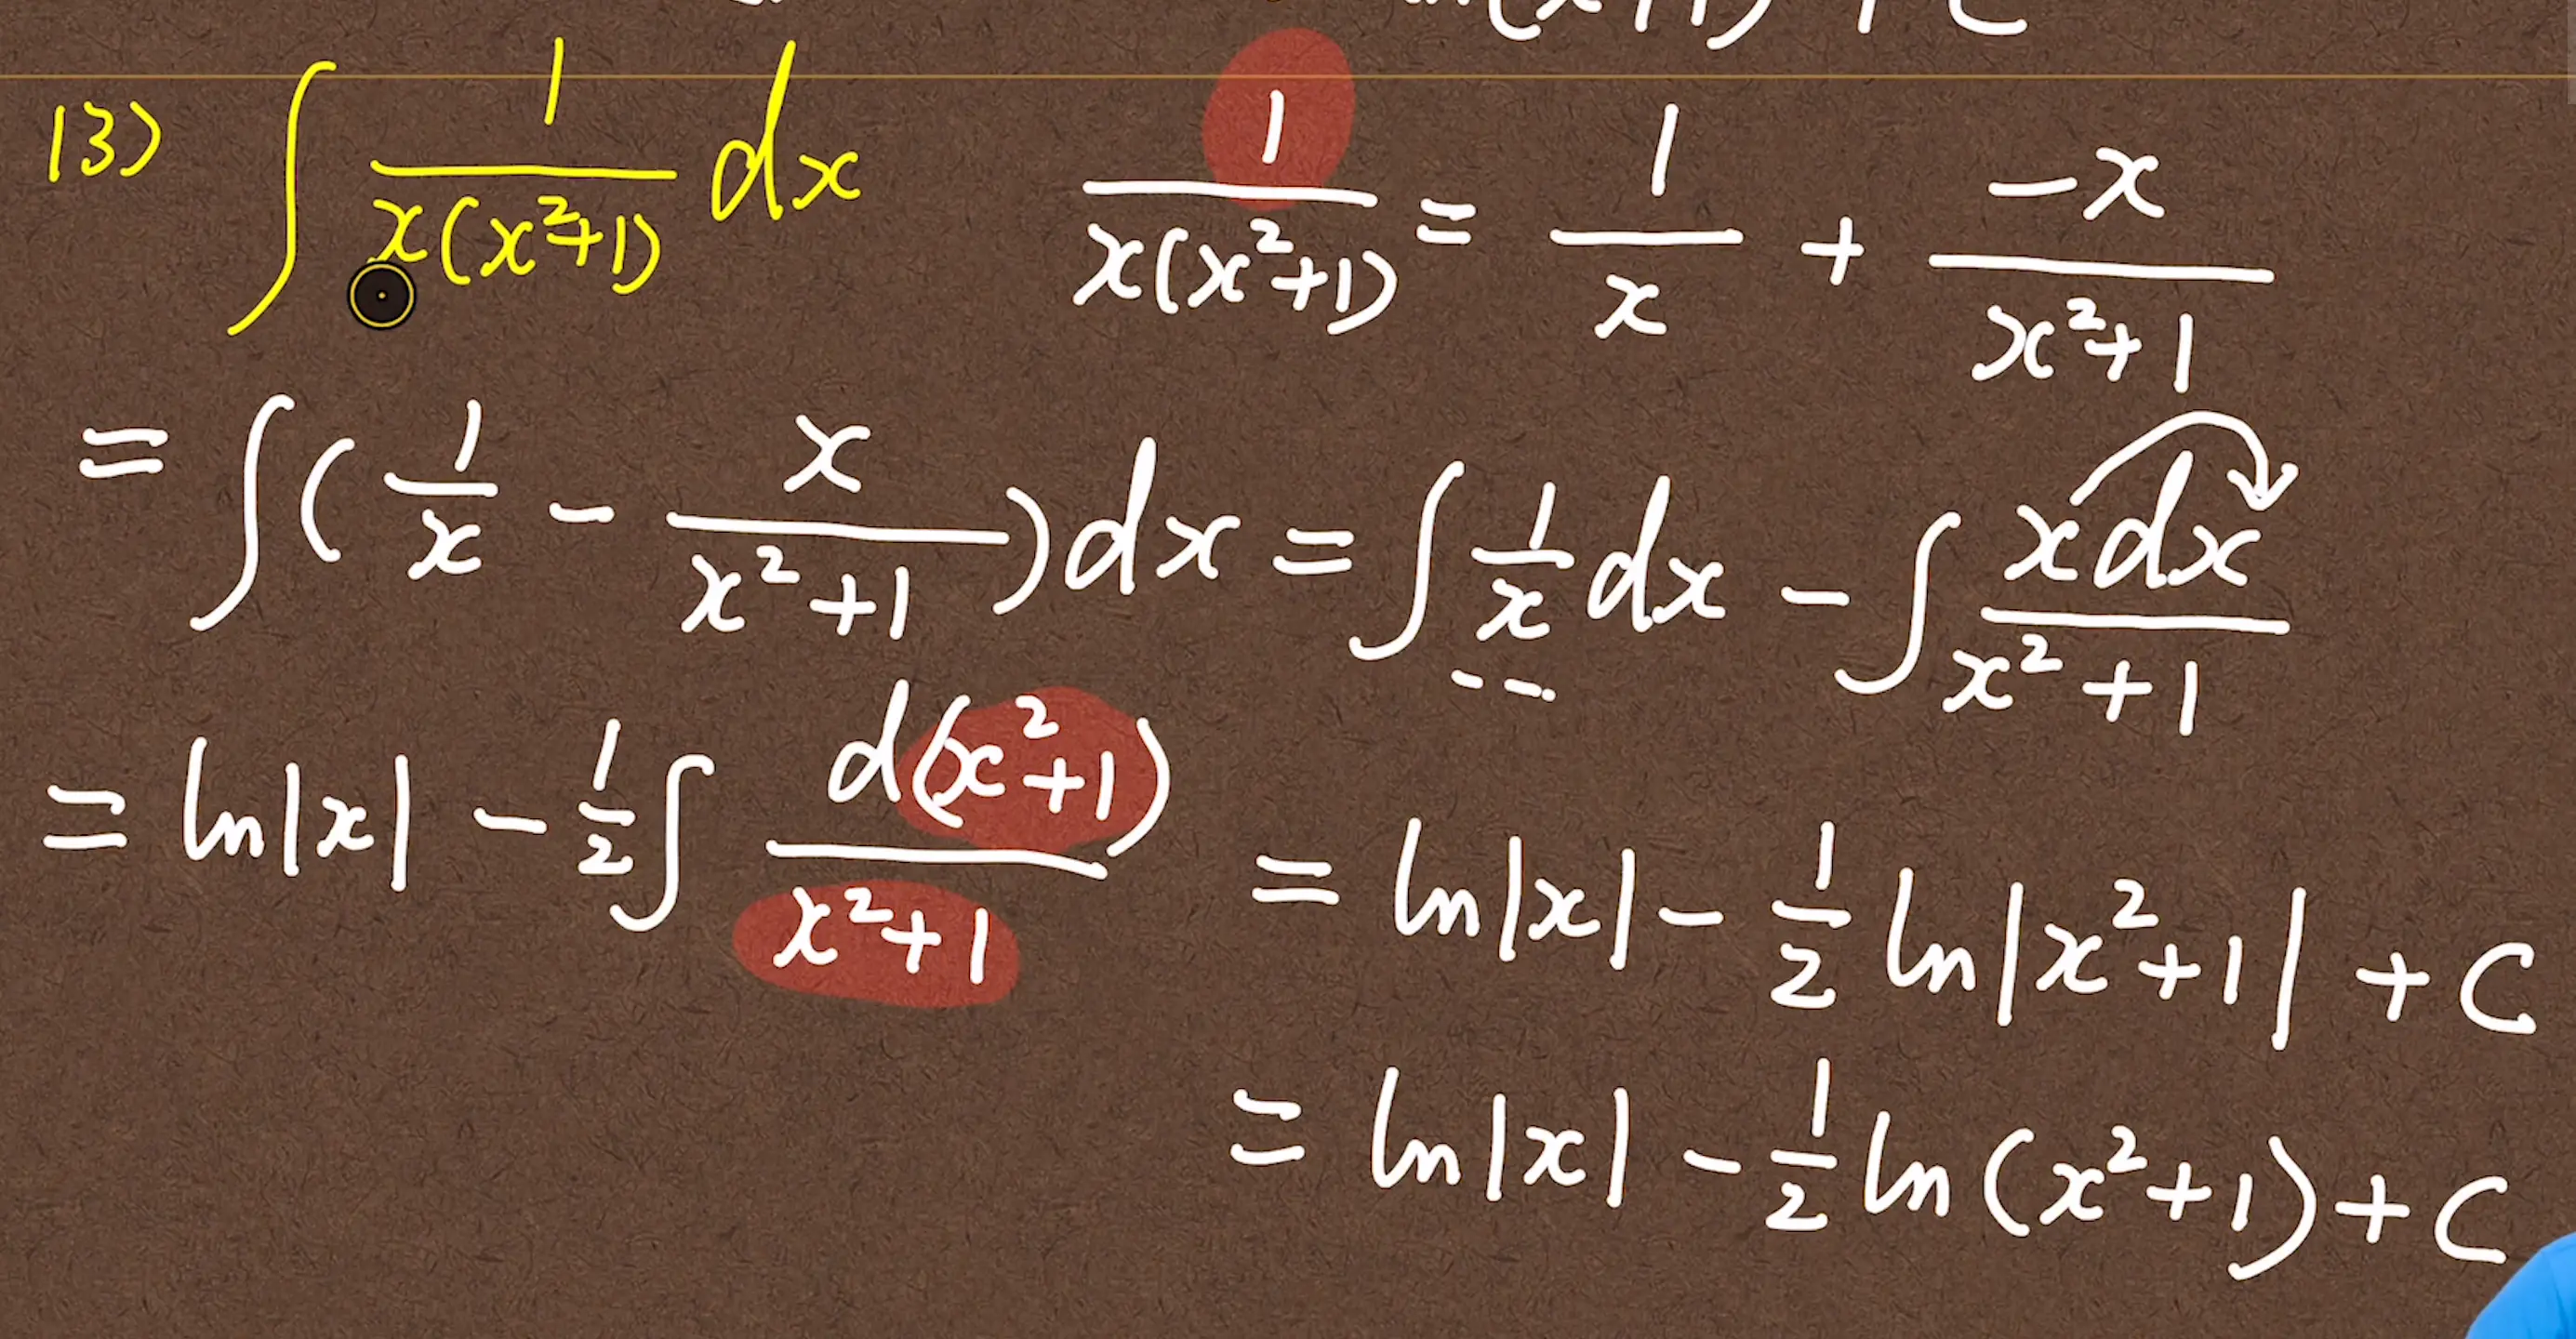 ln(x+1) + C
13) ∫ 1/(x(x²+1)) dx    1/(x(x²+1)) = 1/x + -x/(x²+1)
= ∫ (1/x - x/(x²+1)) dx = ∫ 1/x dx - ∫ xdx/(x²+1)
= ln|x| - 1/2 ∫ d(x²+1)/(x²+1) = ln|x| - 1/2 ln|x²+1| + C
= ln|x| - 1/2 ln(x²+1) + C